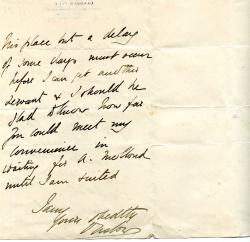 his place but a delay
of some days must occur
before I can get another
servant & I should be
glad to know how far
you could meet my
convenience in
waiting for A.
until I am suited
I am
Yours